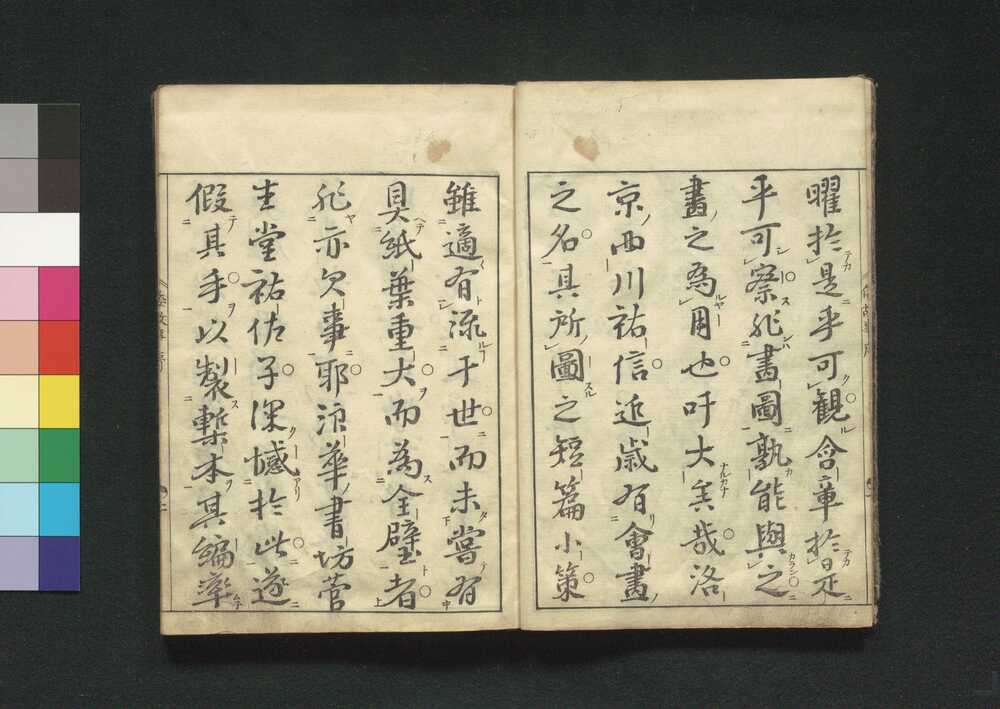 曜於是乎可観含章於是
乎可察非畫圖孰能與之
畫之為用也吁大矣哉洛
京西川祐信近歳有會畫
之名其所圖之短篇小策
雖適有流于世而未嘗有
具紙葉重大而為全璧者
非亦欠事耶浪華書坊菅
生堂祐佐子深憾於此遂
假其手以製槧本其編率